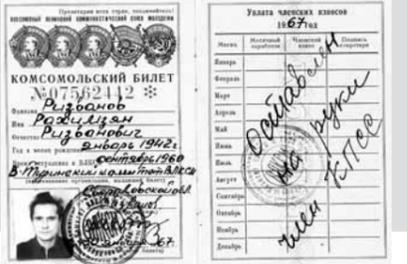 Пролетарии всех стран, соединяйтесь!
ВСЕСОЮЗНЫЙ ЛЕНИНСКИЙ КОММУНИСТИЧЕСКИЙ СОЮЗ МОЛОДЕЖИ
КОМСОМОЛЬСКИЙ БИЛЕТ
№07562442
Фамилия Ризванов
Имя Рахимзян
Отчество Ризванович
Год и месяц рождения январь 1942 г.
Время вступления в ВЛКСМ сентябрь 1960
Уплата членских взносов
1967 год
Месяц
Месячный заработок
Членский взнос
Подпись секретаря
Январь
Февраль
Март
Апрель
Май
Июнь
Июль
Август
Сентябрь
Октябрь
Ноябрь
Декабрь
Оставлен
на руки
член КПСС